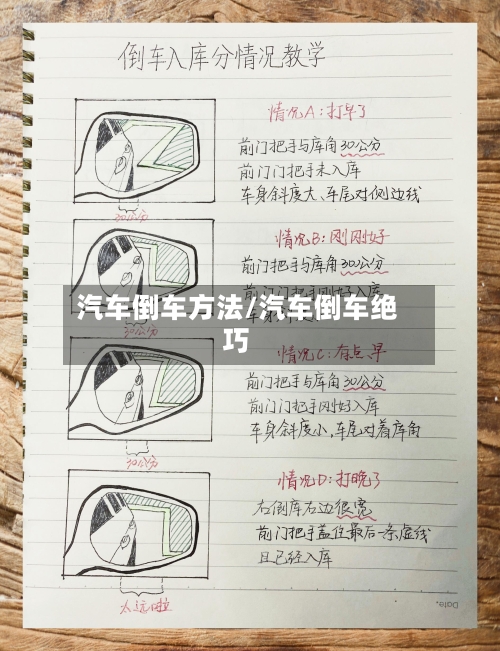 倒车入库分情况教学
情况A:打早了
前门把手与库角30公分
前门门把手未入库
车身斜度大、车尾对侧边线
30公分
情况B:刚刚好
前门把手与库角30公分
前门门把手刚好入库
汽车倒车方法/汽车倒车绝
巧
30公分
情况C:有点早
前门把手与库角30公分
前门门把手刚好入库
车身斜度小,车尾对着库角
10公分
情况D:打晚了
右倒库右边很宽
前门把手盖住最后一条虚线
且已经入库
太远啦
Date.